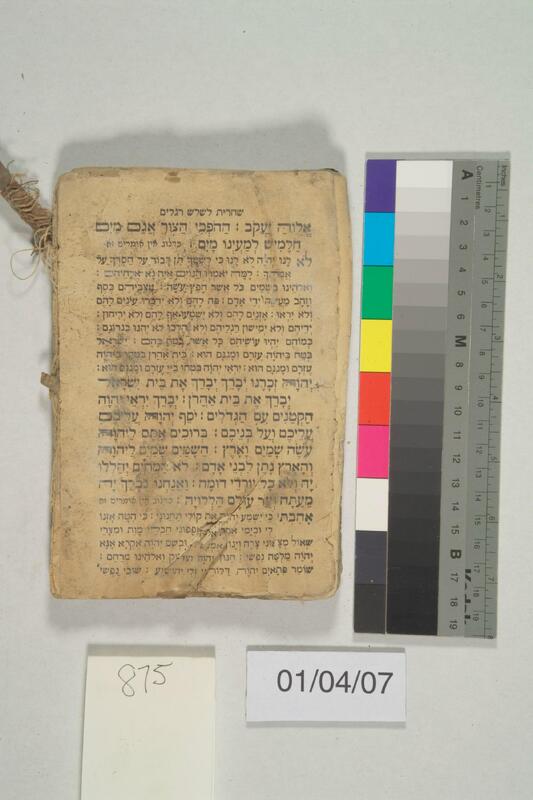 שחרית לשלש רגלים
אֱלוֹהַּ יַעֲקֹב : הַהֹפְכִי הַצּוּר אֲגַם מַיִם
חַלָּמִישׁ לְמַעְיְנוֹ מָיִם :
לֹא לָנוּ יְהֹוָה לֹא לָנוּ כִּי לְשִׁמְךָ תֵּן כָּבוֹד עַל חַסְדְּךָ עַל
אֲמִתֶּךָ : לָמָּה יֹאמְרוּ הַגּוֹיִם אַיֵּה נָא אֱלֹהֵיהֶם :
וֵאלֹהֵינוּ בַשָּׁמָיִם כֹּל אֲשֶׁר חָפֵץ עָשָׂה : עֲצַבֵּיהֶם כֶּסֶף
וְזָהָב מַעֲשֵׂה יְדֵי אָדָם : פֶּה לָהֶם וְלֹא יְדַבֵּרוּ עֵינַיִם לָהֶם
וְלֹא יִרְאוּ : אָזְנַיִם לָהֶם וְלֹא יִשְׁמָעוּ אַף לָהֶם וְלֹא יְרִיחוּן :
יְדֵיהֶם וְלֹא יְמִישׁוּן רַגְלֵיהֶם וְלֹא יְהַלֵּכוּ לֹא יֶהְגּוּ בִּגְרוֹנָם :
כְּמוֹהֶם יִהְיוּ עוֹשֵׂיהֶם כֹּל אֲשֶׁר בֹּטֵחַ בָּהֶם : יִשְׂרָאֵל
בְּטַח בַּיהֹוָה עֶזְרָם וּמָגִנָּם הוּא : בֵּית אַהֲרֹן בִּטְחוּ בַיהֹוָה
עֶזְרָם וּמָגִנָּם הוּא : יִרְאֵי יְהֹוָה בִּטְחוּ בַּיי עֶזְרָם וּמָגִנָּם הוּא :
יְהֹוָה זְכָרָנוּ יְבָרֵךְ יְבָרֵךְ אֶת בֵּית יִשְׂרָאֵל
יְבָרֵךְ אֶת בֵּית אַהֲרֹן : יְבָרֵךְ יִרְאֵי יְהֹוָה
הַקְּטַנִּים עִם הַגְּדֹלִים : יֹסֵף יְהֹוָה עֲלֵיכֶם
עֲלֵיכֶם וְעַל בְּנֵיכֶם : בְּרוּכִים אַתֶּם לַיהֹוָה
עֹשֵׂה שָׁמַיִם וָאָרֶץ : הַשָּׁמַיִם שָׁמַיִם לַיהֹוָה
וְהָאָרֶץ נָתַן לִבְנֵי אָדָם : לֹא הַמֵּתִים יְהַלְלוּ
יָהּ וְלֹא כָּל יוֹרְדֵי דוּמָה : וַאֲנַחְנוּ נְבָרֵךְ יָהּ
מֵעַתָּה וְעַד עוֹלָם הַלְלוּיָהּ :
אָהַבְתִּי כִּי יִשְׁמַע יְהֹוָה אֶת קוֹלִי תַּחֲנוּנָי : כִּי הִטָּה אָזְנוֹ
לִי וּבְיָמַי אֶקְרָא : אֲפָפוּנִי חֶבְלֵי מָוֶת וּמְצָרֵי
שְׁאוֹל מְצָאוּנִי צָרָה וְיָגוֹן אֶמְצָא : וּבְשֵׁם יְהֹוָה אֶקְרָא אָנָּא
יְהֹוָה מַלְּטָה נַפְשִׁי : חַנּוּן יְהֹוָה וְצַדִּיק וֵאלֹהֵינוּ מְרַחֵם :
שׁוֹמֵר פְּתָאיִם יְהֹוָה דַּלּוֹתִי וְלִי יְהוֹשִׁיעַ : שׁוּבִי נַפְשִׁי
inches
Centimetres
A
M
B
Kodak
875
01/04/07